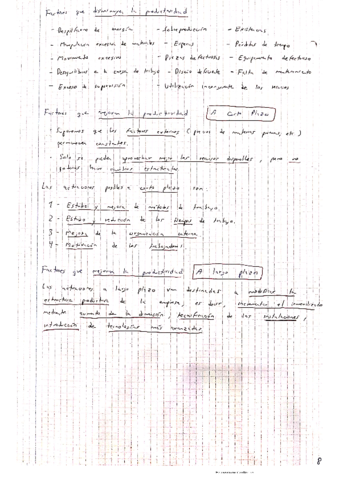 Factores que disminuyen la productividad
- Despilfarro de energía - Sobreproducción - Existencias
- Manipulación excesiva de materiales - Esperas - Pérdidas de tiempo
- Movimientos excesivos - Piezas defectuosas - Equipamiento defectuoso
- Desequilibrios en la carga de trabajo - Diseño deficiente - Falta de mantenimiento
- Exceso de supervisión - Utilización incoherente de los recursos
Factores que mejoran la productividad A corto plazo
- Suponemos que los factores externos (precios de materias primas, etc)
permanecen constantes.
- Solo se puede aprovechar mejor los recursos disponibles, pero no
podemos hacer cambios estructurales
Las actuaciones posibles a corto plazo son:
1 - Estudio y mejora de métodos de trabajo.
2 - Estudio y reducción de los tiempos de trabajo.
3 - Mejora de la organización interna.
4 - Motivación de los trabajadores.
Factores que mejoran la productividad A largo plazo
Las actuaciones a largo plazo van destinadas a modificar la
estructura productiva de la empresa, es decir, incrementar el inmovilizado
mediante aumento de la dimensión, tecnificación de las instalaciones,
introducción de tecnologías más avanzadas.
8